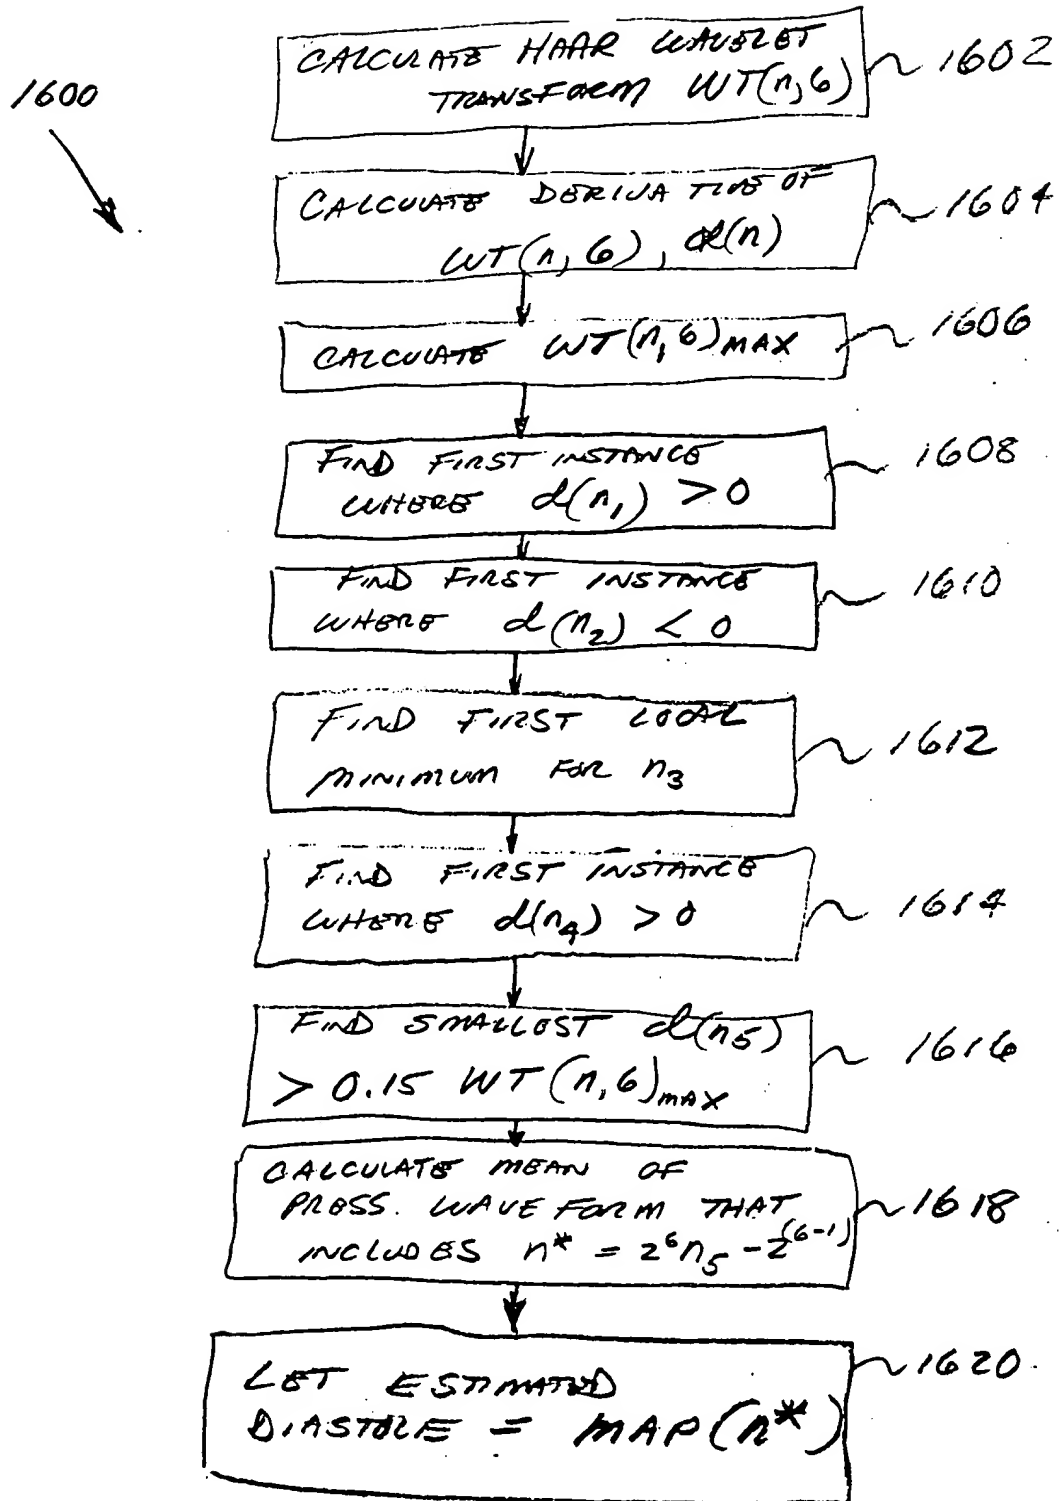 1600
CALCULATE HAAR WAVELET
TRANSFORM WT(n,6)
1602
CALCULATE DERIVATIVE OF
WT(n,6), d(n)
1604
CALCULATE WT(n,6)MAX
1606
FIND FIRST INSTANCE
WHERE d(n1) > 0
1608
FIND FIRST INSTANCE
WHERE d(n2) < 0
1610
FIND FIRST LOCAL
MINIMUM FOR n3
1612
FIND FIRST INSTANCE
WHERE d(n4) > 0
1614
FIND SMALLEST d(n5)
> 0.15 WT(n,6)MAX
1616
CALCULATE MEAN OF
PRESS. WAVEFORM THAT
INCLUDES n* = 2^6 n5 - 2^(6-1)
1618
LET ESTIMATED
DIASTOLE = MAP(n*)
1620